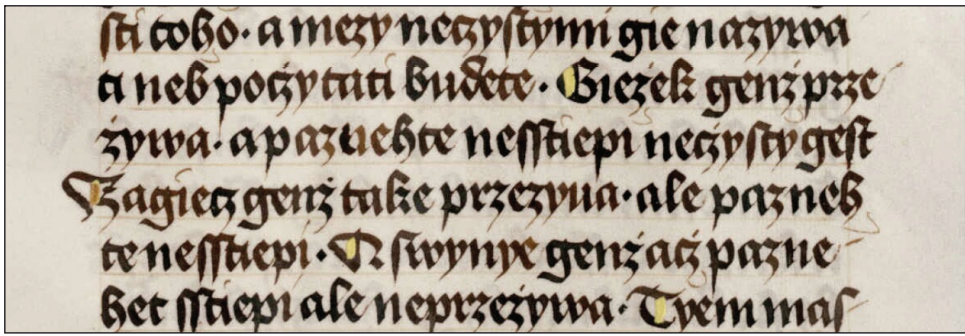 sti toho · a mezy neczystymi gie nazywa
ti neb poczytati budete · Giezek genz prze
zywa · a paznehte nesstiepi neczysty gest
Zagiecz genz take przezyua · ale pazneh
te nesstiepi · A swynye genz acz pazne
het sstiepi ale neprzezywa · Tyem mas